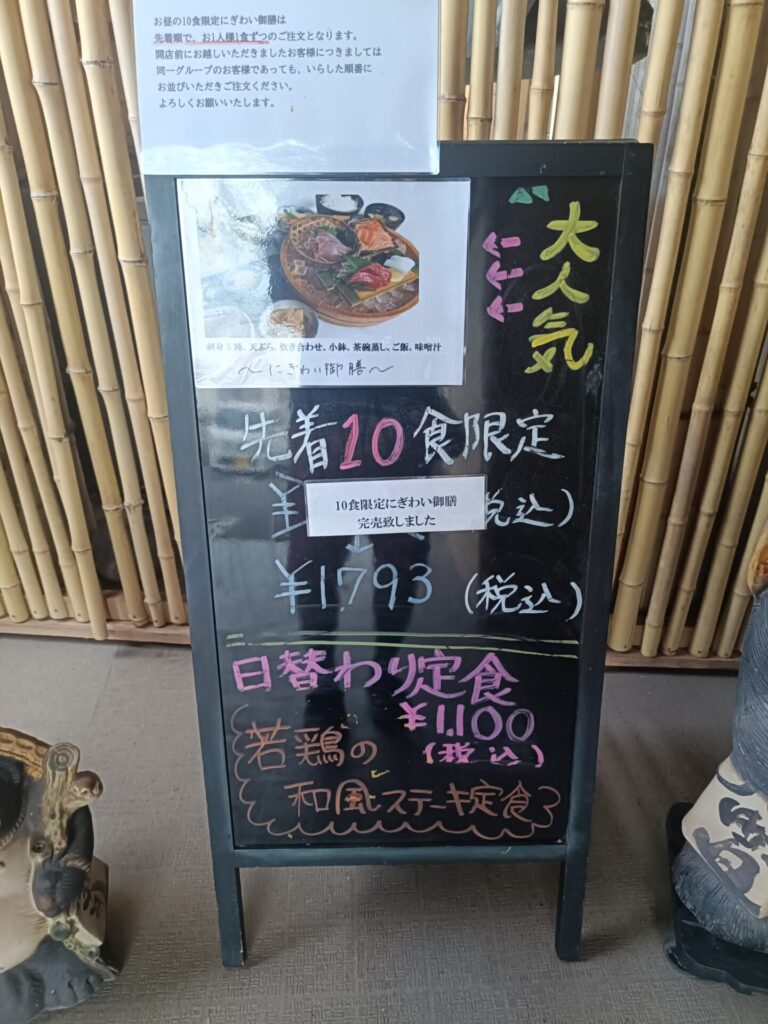 お昼の10食限定にぎわい御膳は
先着順で、お1人様1食ずつのご注文となります。
開店前にお越しいただきましたお客様につきましては
同一グループのお客様であっても、いらした順番に
お並びいただきご注文ください。
よろしくお願いいたします。
大人気
刺身5種、天ぷら、炊き合わせ、小鉢、茶碗蒸し、ご飯、味噌汁
～にぎわい御膳～
先着10食限定
¥
税込)
10食限定にぎわい御膳
完売致しました
¥1.793 (税込)
日替わり定食
¥1.100
(税込)
若鶏の
和風ステーキ定食